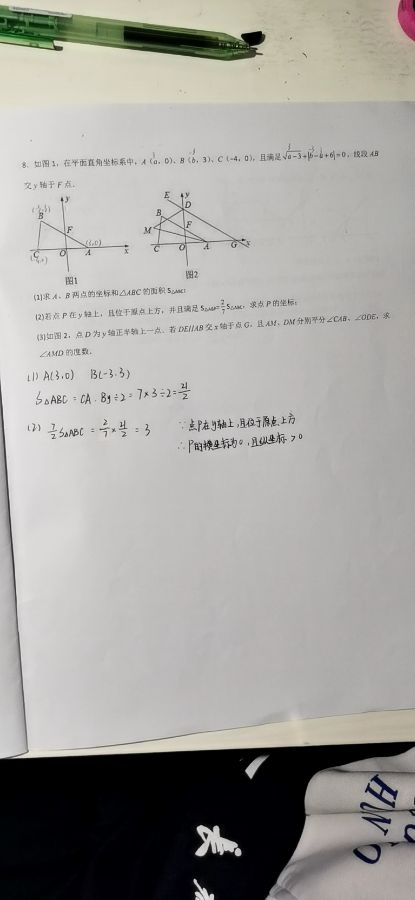 8. 如图1，在平面直角坐标系中，A（a，0）、B（b，3）、C（-4，0），且满足√(a-3)+|b-a+6|=0，线段AB
交y轴于F点．
y
(-3,3)
B
F
(3,0)
C
O
A
x
(-4,0)
图1
E
y
D
B
M
F
C
O
A
G
x
图2
(1)求A、B两点的坐标和△ABC的面积S△ABC；
(2)若点P在y轴上，且位于原点上方，并且满足S△ABP=2/7S△ABC，求点P的坐标；
(3)如图2．点D为y轴正半轴上一点．若DE∥AB交x轴于点G，且AM、DM分别平分∠CAB、∠ODE，求
∠AMD的度数．
(1) A(3,0) B(-3,3)
S△ABC = CA·By÷2 = 7×3÷2 = 21/2
(2) 7/2 S△ABC = 2/7 × 21/2 = 3
∵点P在y轴上,且位于原点上方
∴P的横坐标为0,且纵坐标>0
HNO